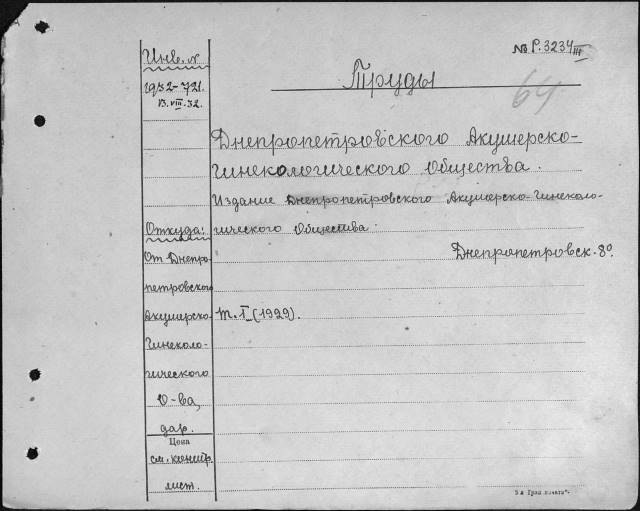 № Р.3234 III
Инв. №
1932-721.
13.VIII.32.
Труды
64
Днепропетровского Акушерско-
Гинекологического Общества.
Издание Днепропетровского Акушерско-Гинеколо-
гического Общества.
Днепропетровск. 8º.
Т. I (1929).
Откуда:
От Днепро-
петровского
Акушерско-
Гинеколо-
гического
О-ва,
дар.
Цена
см. контр.
лист.